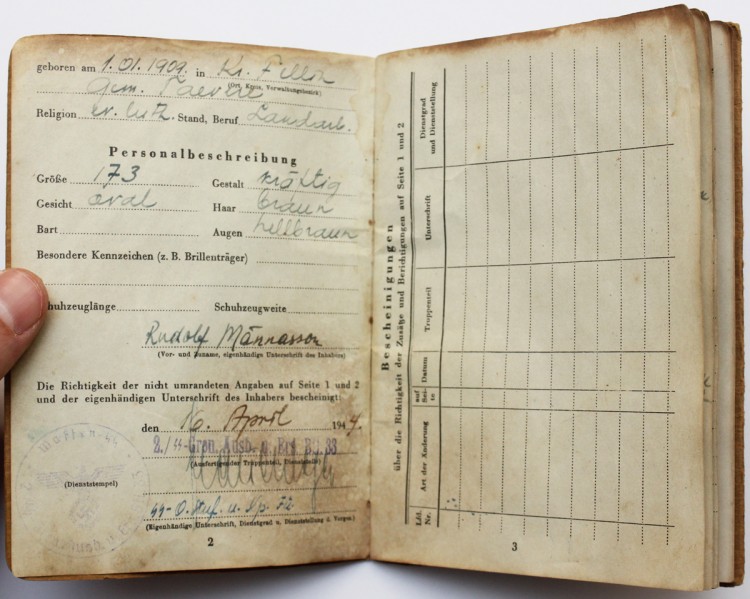 geboren am 1.01.1909. in Kr. Fellin
(Ort, Kreis, Verwaltungsbezirk)
Gem.
Religion ev. luth. Stand, Beruf Landarb.
Personalbeschreibung
Größe 173 Gestalt kräftig
Gesicht oval Haar braun
Bart Augen hellbraun
Besondere Kennzeichen (z. B. Brillenträger)
Schuhzeuglänge Schuhzeugweite
Rudolf Männasson
(Vor- und Zuname, eigenhändige Unterschrift des Inhabers)
Die Richtigkeit der nicht umrandeten Angaben auf Seite 1 und 2
und der eigenhändigen Unterschrift des Inhabers bescheinigt
den 16. April 1944.
2./SS-Gren. Ausb. u. Ers. Btl. 33
(Ausfertigender Truppenteil, Dienststelle)
Waffen-SS
(Dienststempel)
SS-O.Stuf. u. Kp. Fü.
(Eigenhändige Unterschrift, Dienstgrad u. Dienststellung d. Vorges.)
2
Bescheinigungen
über die Richtigkeit der Zusätze und Berichtigungen auf Seite 1 und 2
Lfd. Nr.
Art der Änderung
auf Seite
Datum
Truppenteil
Unterschrift
Dienstgrad und Dienststellung
3